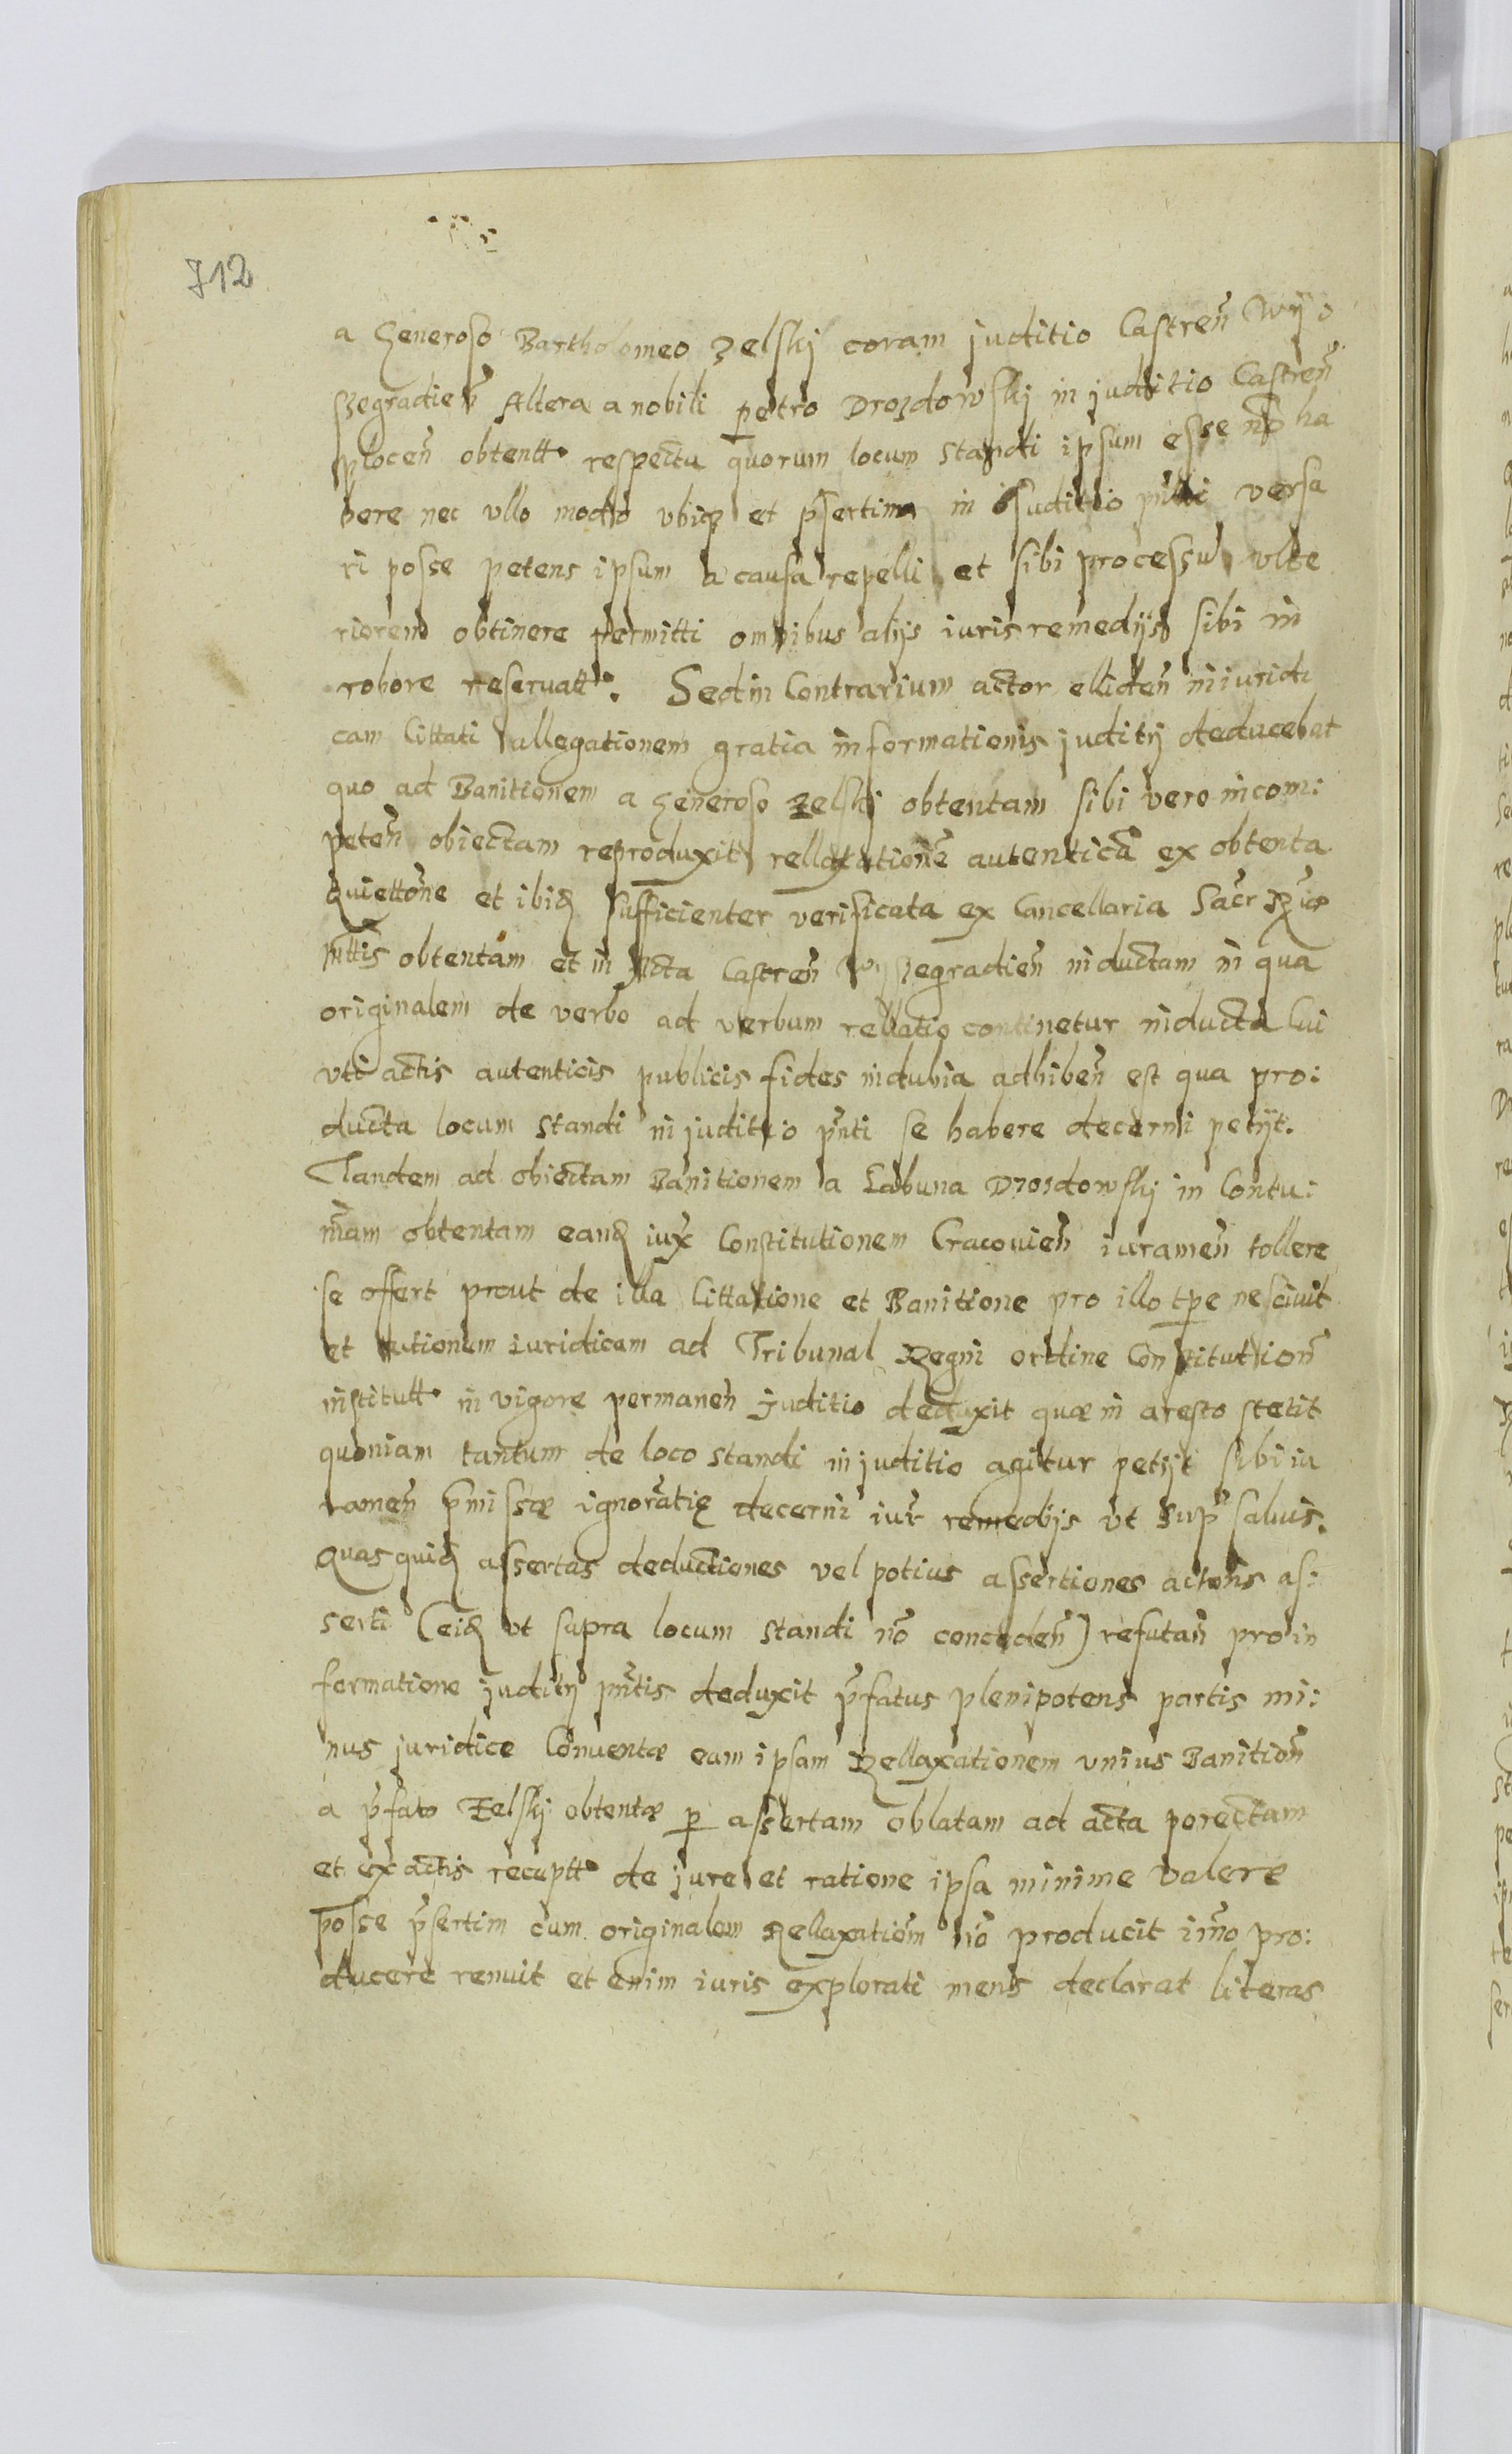 712
a Generoso Bartholomeo Zelskj coram juditio Castren̄ Wÿs
szegradien̄ Altera a nobili petro Drozdowskj in juditio Castren̄
plocen̄ obtentt respectu quorum locum standi ipsum esse nō ha
bere nec vllo modo vbiqȝ et p̄sertim in Juditio versa
ri posse petens ipsum a causa repelli et sibi processū vlte
riorem obtinere permitti omnibus alijs iuris remedijs sibi in
robore reseruatt: Sed in Contrarium actor elliden̄ iniuridi
cam Cittati allegationem gratia informationis juditij deducebat
quo ad Banitionem a Generoso Zelskj obtentam sibi vero incom:
peten̄ obiectam reproduxit rellaxationē autenticā ex obtenta
Quiettōne et ibiđ sufficienter verificata ex Cancellaria Sacr̄
obtentam et in Acta Castren̄ Wyszegradien̄ inductam in qua
originalem de verbo ad verbum rellatio continetur inducta Cui
vti actis autenticis publicis fides indubia adhiben̄ est qua pro:
ducta locum standi in juditio pn̄ti se habere decerni petijt.
Tandem ad obiectam Banitionem a Labuna Drozdowskj in Contu:
m̄am obtentam eand iux̄ Constitutionem Cracouien̄ iuramen̄ tollere
se offert prout de illa Cittatione et Banitione pro illo tp̄e nesciuit
et actionem iuridicam ad Tribunal Regni ordine Constitution̄
institutt in vigore permanen̄ Juditio deduxit quæ in aresto stetit
quoniam tantum de loco standi in juditio agitur petijt sibi iu
ramen̄ p̄missæ ignorātię decerni iur̄ remedijs vt sup̄ saluis.
Quas quiđ assertas deductiones vel potius assertiones actoris as:
serti (eiđ vt supra locum standi nō conceden̄) refutan̄ pro in
formatione juditij pn̄tis deduxit p̄fatus plenipotens partis mi:
nus juridice Conuentæ eam ipsam Rellaxationem vnius Banition̄
a p̄fato Zelskj obtentæ p assertam oblatam ad acta porectam
et ex actis receptt de jure et ratione ipsa minime valere
posse p̄sertim cum originalem Rellaxatiōm nō producit imo pro:
ducere renuit et enim iuris explorati mens declarat literas